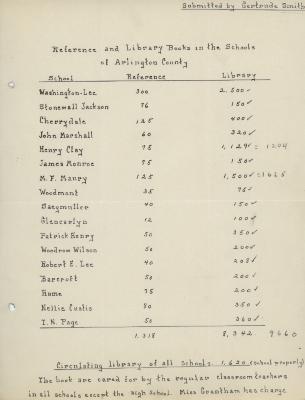 Submitted by Gertrude Smith
Reference and Library Books in the Schools
of Arlington County
School Reference Library
Washington-Lee 300 2,500✓
Stonewall Jackson 76 150✓
Cherrydale 125 400✓
John Marshall 60 320✓
Henry Clay 75 1,129✓ = 1204
James Monroe 75 150✓
M. F. Maury 125 1,500✓ = 1625
Woodmont 35 75✓
Saegmuller 40 150✓
Glencarlyn 12 100✓
Patrick Henry 50 350✓
Woodrow Wilson 50 200✓
Robert E. Lee 40 208✓
Barcroft 50 200✓
Hume 75 200✓
Nellie Custis 80 350✓
T. N. Page 50 360✓
1,318 8,342 9660
Circulating library of all schools. 1,620 (school property)
The book are cared for by the regular classroom teachers
in all schools except the High School. Miss Grantham has charge